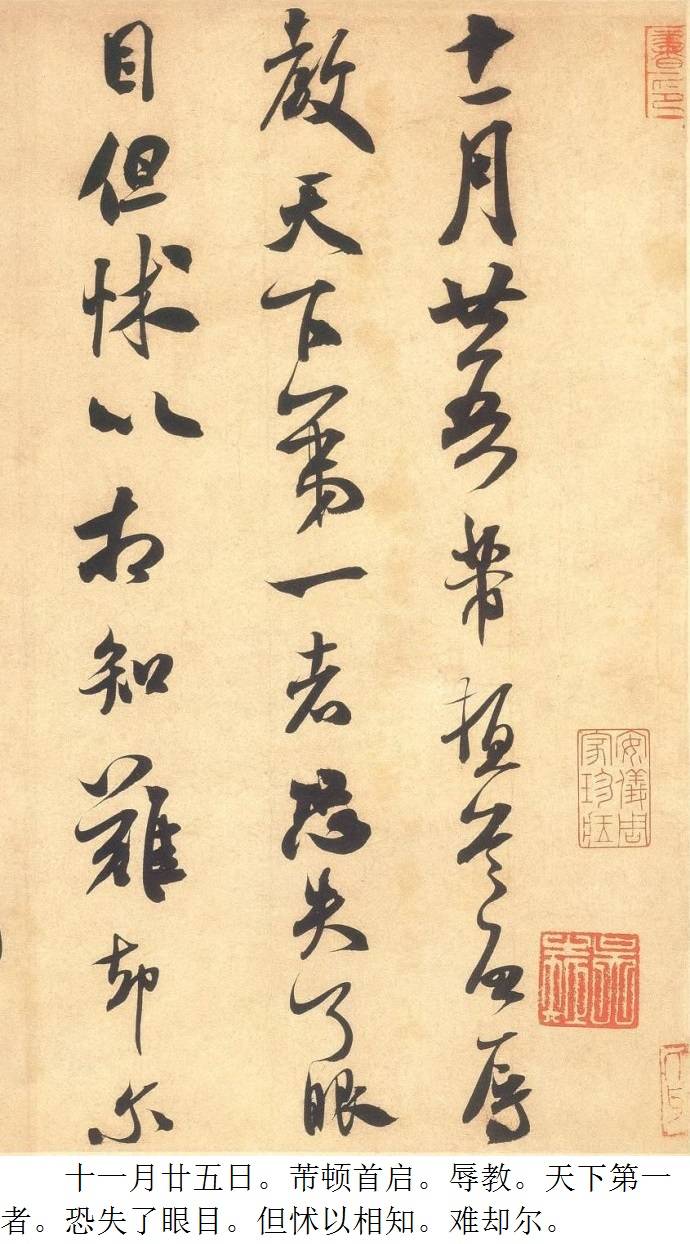 十一月廿五日芾頓首啓辱
教天下第一者恐失了眼
目但怵以相知難却尔
十一月廿五日。芾顿首启。辱教。天下第一
者。恐失了眼目。但怵以相知。难却尔。